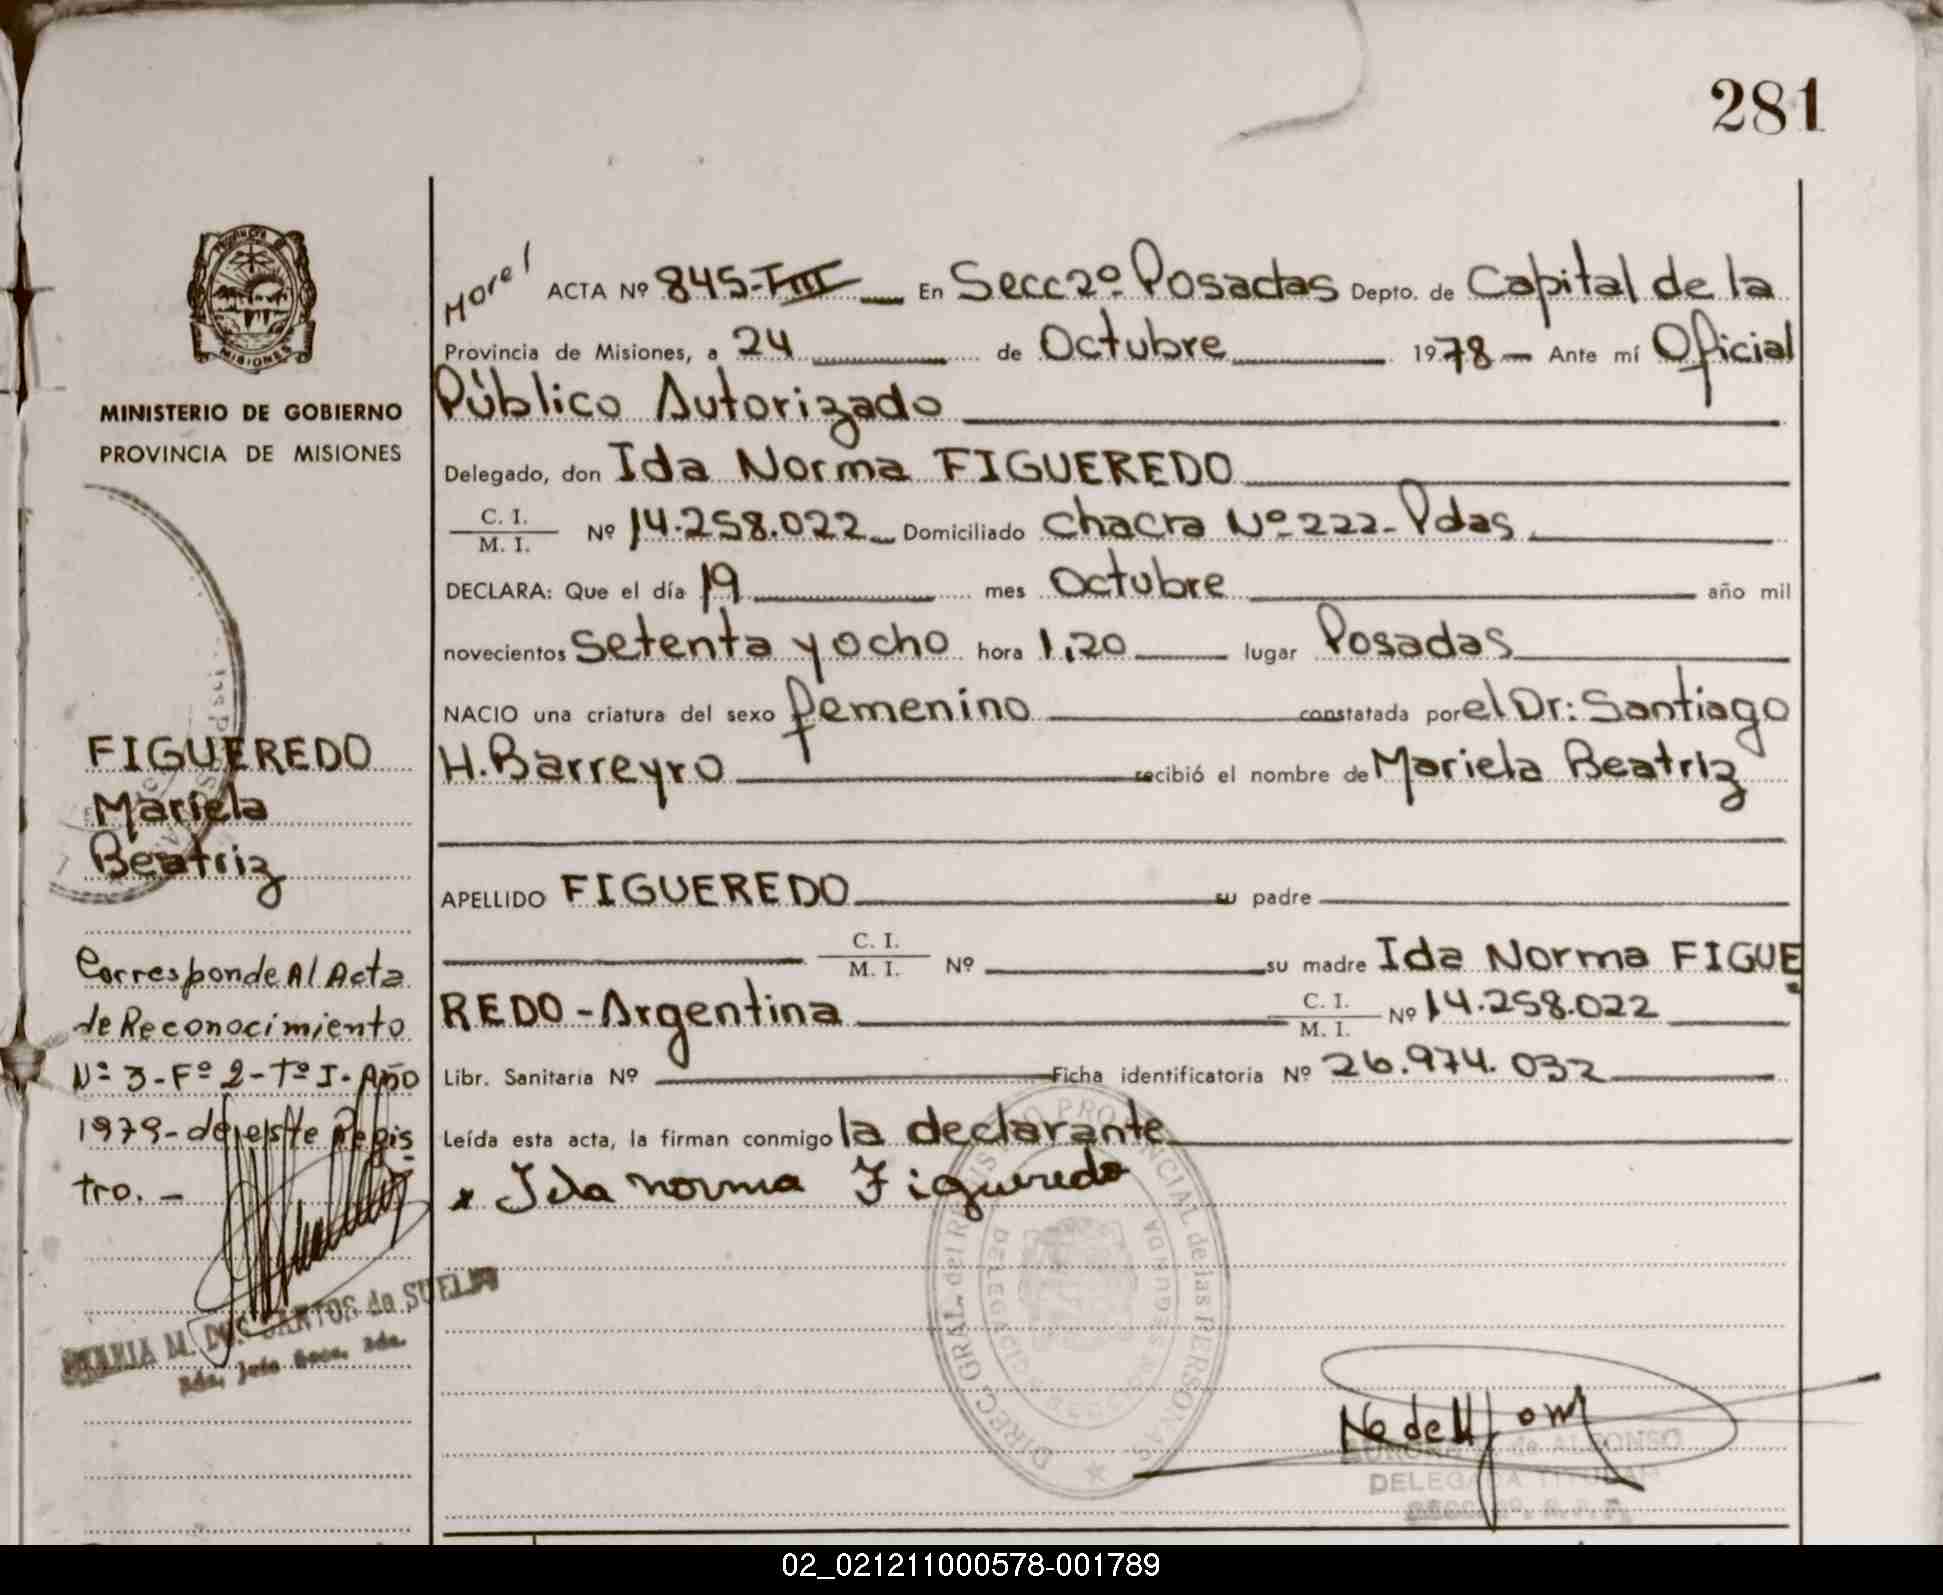 281
PROVINCIA DE
MISIONES
MINISTERIO DE GOBIERNO
PROVINCIA DE MISIONES
FIGUEREDO
Mariela
Beatriz
Corresponde Al Acta
de Reconocimiento
Nº 3-Fº 2-Tº I-Año
1979- de este Regis
tro. -
MARIA M. DOS SANTOS de SUELDO
Morel ACTA Nº 845-TIII En Secc 2º Posadas Depto. de Capital de la
Provincia de Misiones, a 24 de Octubre 1978 Ante mí Oficial
Público Autorizado
Delegado, don Ida Norma FIGUEREDO
C. I.
M. I. Nº 14.258.022 Domiciliado chacra Nº 222- Pdas
DECLARA: Que el día 19 mes Octubre año mil
novecientos setenta y ocho hora 1,20 lugar Posadas
NACIO una criatura del sexo femenino constatada por el Dr: Santiago
H. Barreyro recibió el nombre de Mariela Beatriz
APELLIDO FIGUEREDO su padre
C. I.
M. I. Nº su madre Ida Norma FIGUE
REDO-Argentina C. I.
M. I. Nº 14.258.022
Libr. Sanitaria Nº Ficha identificatoria Nº 26.974.032
Leída esta acta, la firman conmigo la declarante
x Ida norma Figueredo
DIREC. GRAL. del REGISTRO PROVINCIAL de las PERSONAS
de ALFONSO
DELEGADA TITULAR
02_021211000578-001789